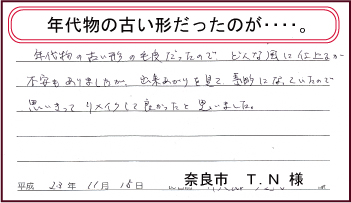 年代物の古い形だったのが・・・・。
年代物の古い形の毛皮だったので、どんな風に仕上るか
不安もありましたが、出来あがりを見て、素敵になっていたので
思いきって リメイクして良かったと思いました。
平成 23年 11月 15日
奈良市 T.N 様